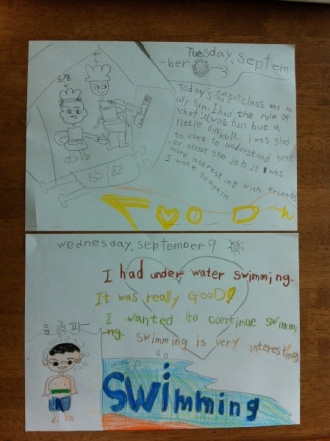 Tuesday, Septem
-ber
Today's class was re
ally fun. I had the role of
chef. It was fun but a
little difficult. I was glad
to come to understand bett
er about the job. It was
more interesting with friends
I want to again.
wednesday, september 9
I had under water swimming.
It was really GOOD!
I wanted to continue swimmi
ng. swimming is very interesting
swimming